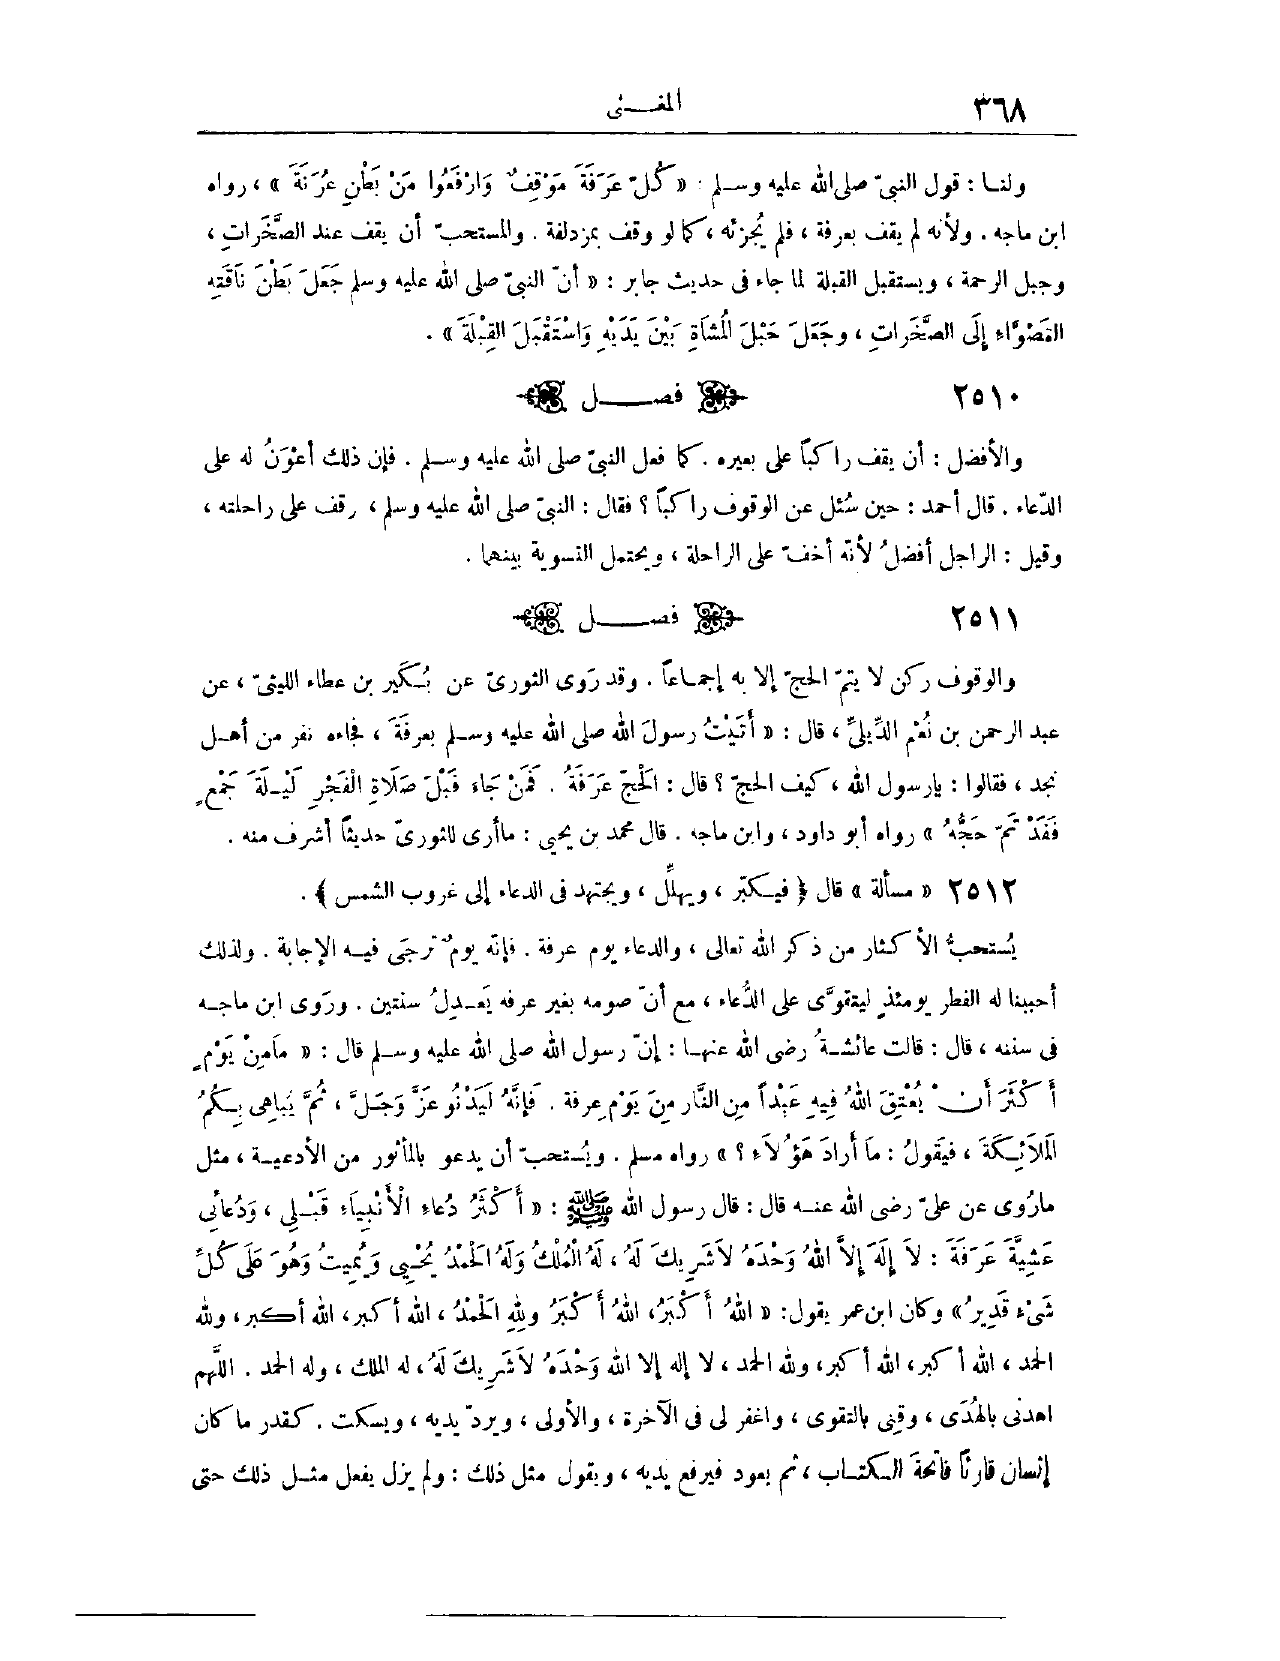 ٣٦٨ المغـــنى
ولنـا : قول النبىّ صلى الله عليه وسـلم : « كُلّ عَرَفَةَ مَوْقِفٌ وَارْفَعُوا مَنْ بَطْنِ عُرَنَةَ » ، رواه
ابن ماجه . ولأنه لم يقف بعرفة ، فلم يُجزئه ، كما لو وقف بمزدلفة . والمستحبّ أن يقف عند الصَّخَرات ،
وجبل الرحمة ، ويستقبل القبلة لما جاء فى حديث جابر : « أنّ النبىّ صلى الله عليه وسلم جَعَلَ بَطْنَ نَاقَتِهِ
القَصْوَّاءِ إِلَى الصَّخَرَاتِ ، وجَعَلَ حَبْلَ الْمُشَاةِ بَيْنَ يَدَيْهِ وَاسْتَقْبَلَ القِبْلَةَ » .
٢٥١٠ فصـــــل
والأفضل : أن يقف راكباً على بعيره . كما فعل النبىّ صلى الله عليه وسـلم . فإن ذلك أعْوَنُ له على
الدّعاء . قال أحمد : حين سُئل عن الوقوف راكباً ؟ فقال : النبىّ صلى الله عليه وسلم ، وقف على راحلته ،
وقيل : الراجل أفضلُ لأنّه أخفّ على الراحلة ، ويحتمل التسوية بينهما .
٢٥١١ فصـــــل
والوقوف ركن لا يتمّ الحجّ إلا به إجمـاعاً . وقد رَوى الثورىّ عن بُـكَير بن عطاء الليثىّ ، عن
عبد الرحمن بن نُعْم الدِّيلىِّ ، قال : « أَتَيْتُ رسولَ الله صلى الله عليه وسـلم بعرفَةَ ، فجاءه نفر من أهـل
نجد ، فقالوا : يارسول الله ، كيف الحجّ ؟ قال : الْحَجّ عَرَفَةُ . فَمَنْ جَاءَ قَبْلَ صَلَاةِ الْفَجْرِ لَيْـلَةَ جَمْعٍ
فَقَدْ تَمّ حَجُّهُ » رواه أبو داود ، وابن ماجه . قال محمد بن يحيى : ماأرى للثورىّ حديثاً أشرف منه .
٢٥١٢ « مسألة » قال ﴿ فيـكبّر ، ويهلّل ، ويجتهد فى الدعاء إلى غروب الشمس ﴾ .
يُستحبُّ الأكثار من ذكر الله تعالى ، والدعاء يوم عرفة . فإنّه يومٌ ترجَى فيـه الإجابة . ولذلك
أحببنا له الفطر يومئذٍ ليتقوَّى على الدُّعاء ، مع أنّ صومه بغير عرفه يَعـدِلُ سنتين . ورَوى ابن ماجـه
فى سننه ، قال : قالت عائشـةُ رضى الله عنهـا : إنّ رسول الله صلى الله عليه وسـلم قال : « مَامِنْ يَوْمٍ
أَكْثَرَ أَنْ يُعْتِقَ اللهُ فِيهِ عَبْداً مِن النَّار مِنَ يَوْمِ عرفة . فَإنَّهُ لَيَدْنُو عَزَّ وَجَـلَّ ، ثُمَّ يُبَاهِى بِـكُمُ
الْمَلَائِـكَةَ ، فيَقُولُ : مَا أَرَادَ هَؤُلاَءِ ؟ » رواه مسلم . ويُستحبّ أن يدعو بالمأثور من الأدعيـة ، مثل
مارُوى عن علىّ رضى الله عنـه قال : قال رسول الله ﷺ : « أَكْثَرُ دُعَاءِ الْأَنْبِيَاءِ قَبْـلِى ، وَدُعائِى
عَشِيَّةَ عَرَفَةَ : لاَ إِلَهَ إِلاَّ اللهُ وَحْدَهُ لاَشَرِيكَ لَهُ ، لَهُ الْمُلْكُ وَلَهُ الْحَمْدُ يُحْـيِى وَيُمِيتُ وَهُوَ عَلَى كُلِّ
شَىْءٍ قَدِيرٌ » وكان ابن عمر يقول : « اللهُ أَكْبَرُ ، اللهُ أَكْبَرُ ولِلهِ الْحَمْدُ ، الله أكبر ، الله أكبر ، ولله
الحمد ، الله أكبر ، الله أكبر ، ولله الحمد ، لا إله إلا الله وَحْدَهُ لاَشَرِيكَ لَهُ ، له الملك ، وله الحمد . اللَّهم
اهدنى بالهُدَى ، وقنِى بالتقوى ، واغفر لى فى الآخرة ، والأولى ، ويردّ يديه ، ويسكت . كقدر ما كان
إنسان قارئاً فاتحةَ الـكتـاب ، ثم يعود فيرفع يديه ، ويقول مثل ذلك : ولم يزل يفعل مثـل ذلك حتى